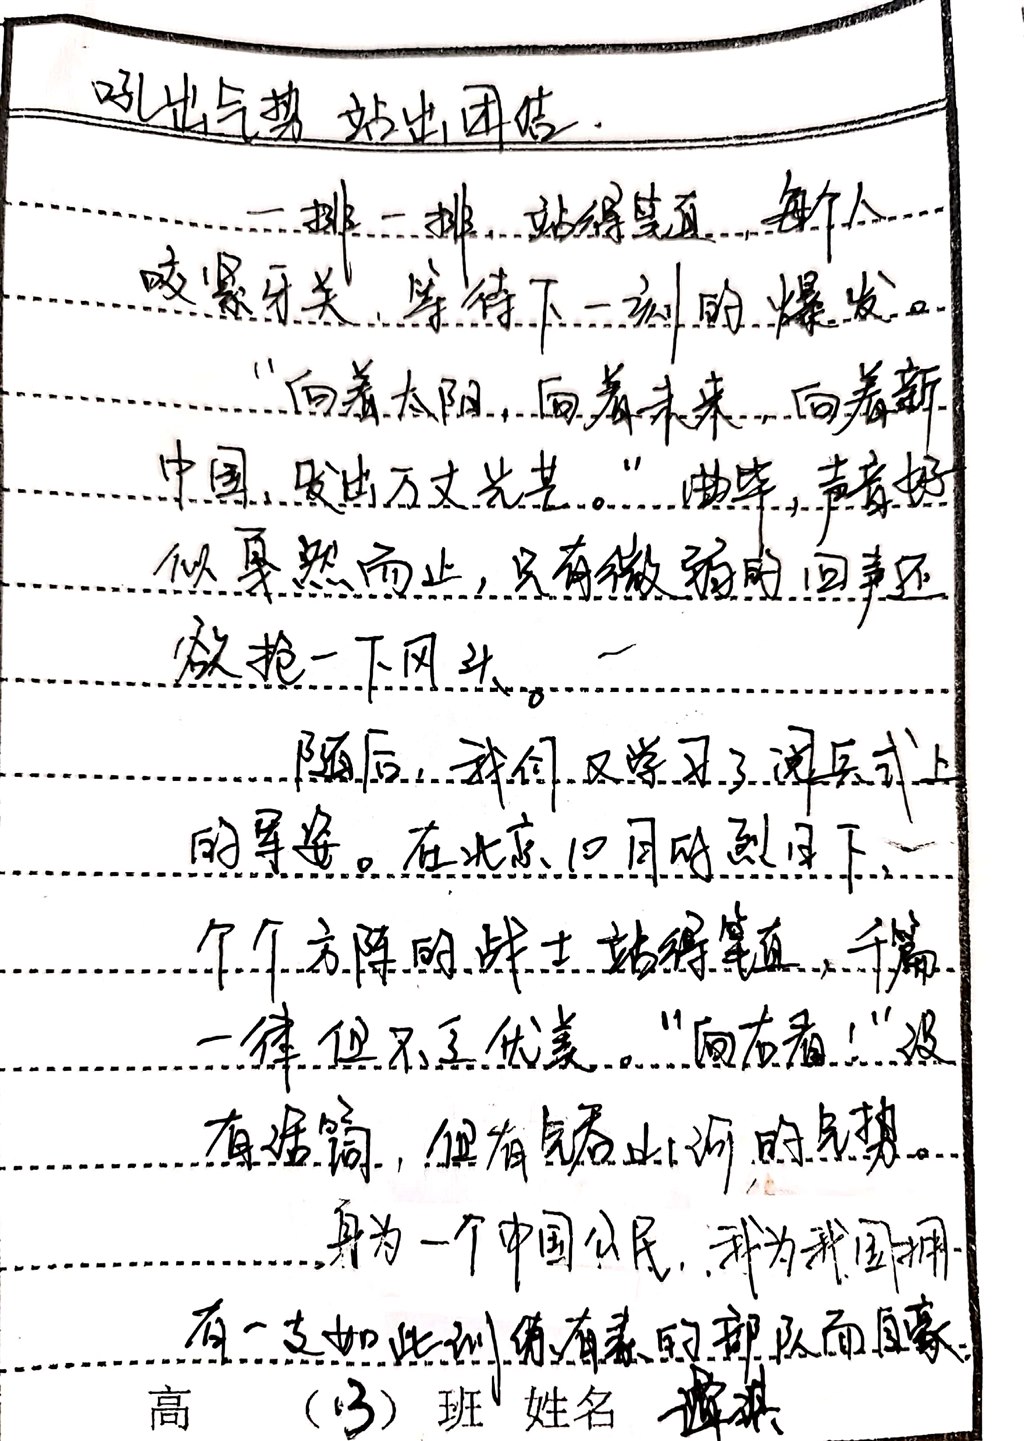 吼出气势 站出团结.
一排一排,站得笔直,每个人
咬紧牙关,等待下一刻的爆发。
“向着太阳,向着未来,向着新
中国,发出万丈光芒。”曲毕,声音好
似戛然而止,只有微弱的回声还
欲抢一下风头。
随后,我们又学习了阅兵式上
的军姿。在北京10月的烈日下,一
个个方阵的战士站得笔直,千篇
一律但不失优美。“向右看!”没
有话筒,但有气吞山河的气势。
身为一个中国公民,我为我国拥
有一支如此训练有素的部队而自豪.
高 (13) 班 姓名 谭琪